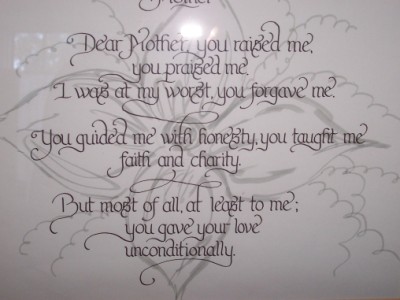 Mother
Dear Mother, you raised me,
you praised me.
I was at my worst, you forgave me.
You guided me with honesty, you taught me
faith and charity.
But most of all, at least to me;
you gave your love
unconditionally.